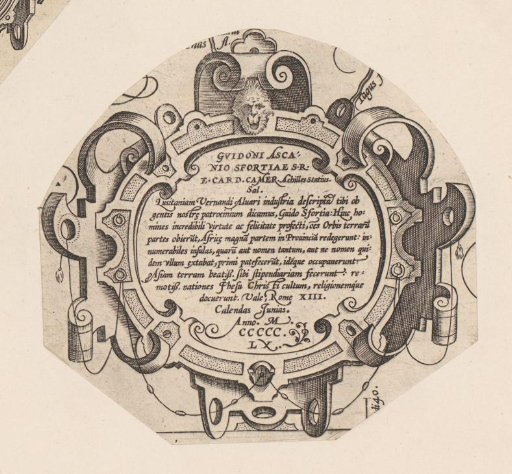 GVIDONI ASCA-
NIO SFORTIAE S·R·
E·CARD·CAMER Achilles Statius.
Sal.
Lusitaniam Vernandi Aluari industria descriptā tibi ob
gentis nostrę patrocinium dicamus, Guido Sfortia: Hinc ho-
mines incredibili virtute ac felicitate profecti, oēs Orbis terrarū
partes obierūt, Africę magnā partem in Prouinciā redegerunt: in-
numerabiles insulas, quarū aut nomen tantum, aut ne nomen qui-
dem vllum extabat, primi patefecerūt, idēque occupauerunt.
Asiam terram beatiss. sibi stipendiariam fecerunt: re-
motiss. nationes Jhesu Christi cultum, religionemque
docuerunt. Vale: Romę XIII.
Calendas Junias.
Anno. M.
CCCCC.
LX.
Tagus f